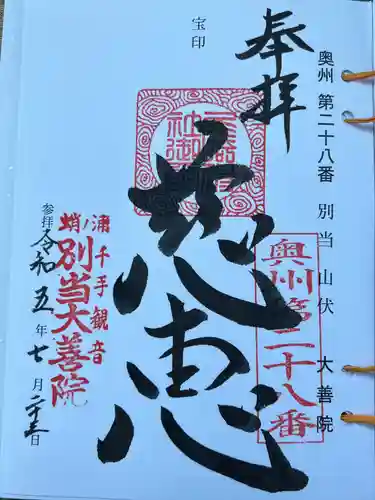 奥州 第二十八番 別当 山伏 大善院
奉拝
宝印
慈恵
奥州第二十八番
浦千手観音
蛸ノ
別当大善院
参拝 令和五年七月二十三日